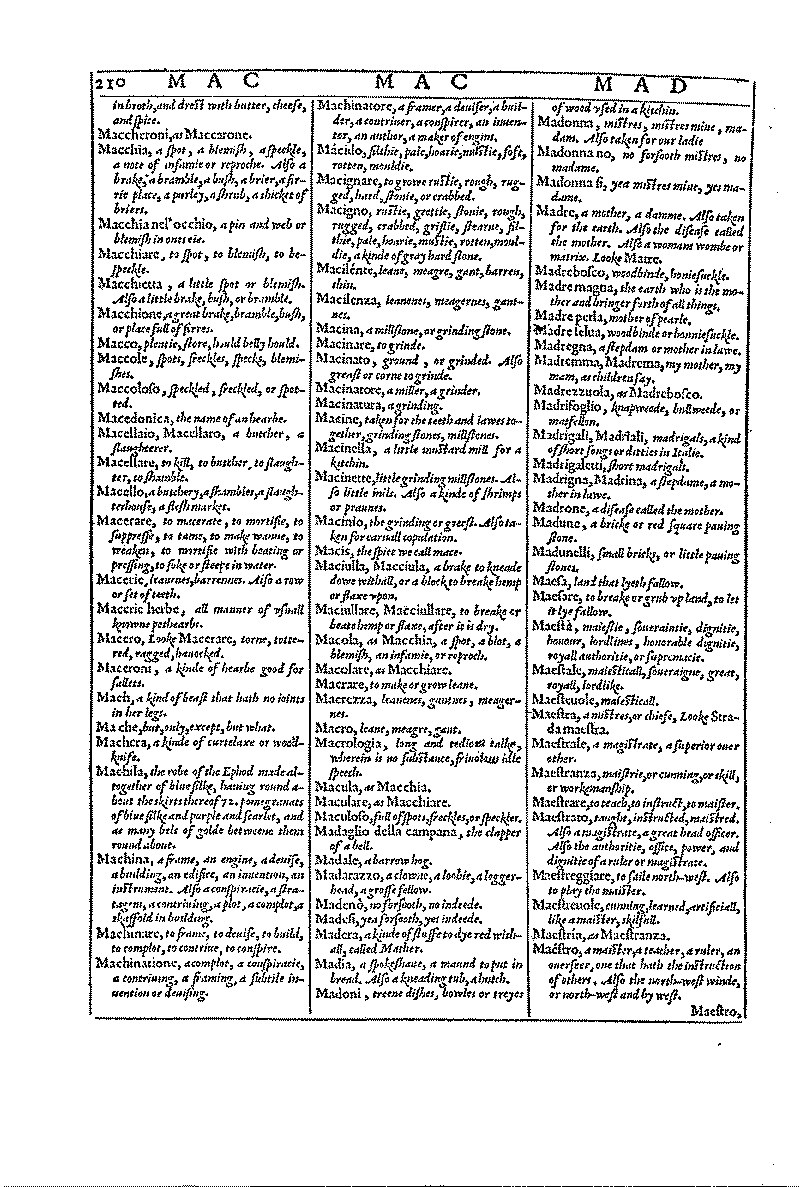 210 MAC MAC MAD
in broth, and drest with butter, cheese,
and spice.
Maccheroni, as Maccarone.
Macchia, a spot, a blemish, a speckle,
a note of infamie or reproche. Also a
brake, a bramble, a bush, a brier, a fir-
rie place, a purley, a shrub, a thicket of
briers.
Macchia nel' occhio, a pin and web or
blemish in ones eie.
Macchiare, to spot, to blemish, to be-
speckle.
Macchietta, a little spot or blemish.
Also a little brake, bush, or bramble.
Macchione, a great brake, bramble, bush,
or place full of firres.
Macco, plentie, store, hould belly hould.
Maccole, spots, freckles, specks, blemi-
shes.
Maccoloso, speckled, freckled, or spot-
ted.
Macedonica, the name of an hearbe.
Macellaio, Macellaro, a butcher, a
slaugheerer.
Macellare, to kill, to butcher, to slaugh-
ter, to shamble.
Macello, a butchery, a shambles, a slaugh-
terhouse, a flesh market.
Macerare, to macerate, to mortifie, to
suppresse, to tame, to make wanne, to
weaken, to mortifie with beating or
pressing, to soke or steepe in water.
Macerie, leannes, barrennes. Also a row
or set of teeth.
Maceric herbe, all manner of vsuall
knowne potherbe.
Macero, Looke Macerare, torne, totte-
red, ragged, hauocked.
Maceroni, a kinde of hearbe good for
sallets.
Mach, a kind of beast that hath no ioints
in her legs.
Ma che, but, only, except, but what.
Machera, a kinde of curtelaxe or wood-
knife.
Machila, the robe of the Ephod made al-
together of blue silke, hauing round a-
bout the skirts thereof 72. pomegranats
of blue silke and purple and scarlet, and
as many bels of golde betweene them
round about.
Machina, a frame, an engine, a deuise,
a building, an edifice, an inuention, an
instrument. Also a conspiracie, a stra-
tagem, a contriuing, a plot, a complot, a
skaffold in building.
Machinare, to frame, to deuise, to build,
to complot, to contriue, to conspire.
Machinatione, a complot, a conspiracie,
a contriuing, a framing, a subtile in-
uention or deuising.
Machinatore, a framer, a deuiser, a buil-
der, a contriner, a conspirer, an inuen-
tor, an author, a maker of engins.
Macilo, filthie, pale, hoarie, mustie, soft,
rotten, mouldie.
Macignare, to growe rustie, rough, rug-
ged, hard, stonie, or crabbed.
Macigno, rustie, grettie, stonie, rough,
rugged, crabbed, gristie, stearne, fil-
thie, pale, hoarie, mustie, rotten, moul-
die, a kinde of gray hard stone.
Macilénte, leane, meagre, gant, barren,
thin.
Macilenza, leannes, meagernes, gant-
nes.
Macina, a millstone, or grinding stone.
Macinare, to grinde.
Macinato, ground, or grinded. Also
greast or corne to grinde.
Macinatore, a miller, a grinder.
Macinatura, a grinding.
Macine, taken for the teeth and iawes to-
gether, grinding stones, millstones.
Macinella, a little mustard mill for a
kitchin.
Macinette, little grinding millstones. Al-
so little mils. Also a kinde of shrimps
or praunes.
Macinio, the grinding or greest. Also ta-
ken for carnall copulation.
Macis, the spice we call mace.
Maciulla, Macciula, a brake to kneade
dowe withall, or a block to breake hemp
or flaxe vpon.
Maciullare, Macciullare, to breake or
beate hemp or flaxe, after it is dry.
Macola, as Macchia, a spot, a blot, a
blemish, an infamie, or reproch.
Macolare, as Macchiare.
Macrare, to make or grow leane.
Macrezza, leannes, gantnes, meager-
nes.
Macro, leane, meagre, gant.
Macrologia, long and tedious talke,
wherein is no substance, friuolous idle
speech.
Macula, as Macchia.
Maculare, as Macchiare.
Maculoso, full of spots, freckles, or speckles.
Madaglio della campana, the clapper
of a bell.
Madale, a barrow hog.
Madarazzo, a clowne, a lobie, a logger-
head, a grosse fellow.
Madenò, no forsooth, no indeede.
Madesi, yea forsooth, yet indeede.
Madera, a kinde of stuffe to dye red with-
all, called Mather.
Madia, a spokeshaue, a maund to put in
bread. Also a kneading tub, a hutch.
Madoni, treene dishes, bowles or treyes
of wood vsed in a kitchin.
Madonna, mistres, mistres mine, ma-
dam. Also taken for our ladie
Madonna no, no forsooth mistres, no
madame.
Madonna si, yea mistres mine, yes ma-
dame.
Madre, a mother, a damme. Also taken
for the earth. Also the disease called
the mother. Also a womans wombe or
matrix. Looke Matre.
Madrebosco, woodbinde, honiesuckle.
Madre magna, the earth who is the mo-
ther and bringer forth of all things.
Madre perla, mother of pearle.
Madre selua, woodbinde or honniesuckle.
Madregna, a stepdam or mother in lawe.
Madremma, Madrema, my mother, my
mam, as children say.
Madrezzuola, as Madrebosco.
Madrifoglio, knapweede, bullweede, or
matfellon.
Madrigali, Madriali, madrigals, a kind
of short songs or ditties in Italie.
Madrigaletti, short madrigals.
Madrigna, Madrina, a stepdame, a mo-
ther in lawe.
Madrone, a disease called the mother.
Madune, a bricke or red square pauing
stone.
Madunelli, small bricks, or little pauing
stones.
Maesa, land that lyeth fallow.
Maesare, to breake or grub vp land, to let
it lye fallow.
Maestà, maiestie, soueraintie, dignitie,
honour, lordlines, honorable dignitie,
royall authoritie, or supremacie.
Maestale, maiesticall, soueraigne, great,
royall, lordlike.
Maesteuole, maiesticall.
Maestra, a mistres, or chiefe, Looke Stra-
da maestra.
Maestrale, a magistrate, a superior ouer
other.
Maestranza, maistrie, or cunning, or skill,
or workemanship.
Maestrare, to teach, to instruct, to maister.
Maestrato, taught, instructed, maistred.
Also a magistrate, a great head officer.
Also the authoritie, office, power, and
dignitie of a ruler or magistrate.
Maestreggiare, to saile north-west. Also
to play the maister.
Maestreuole, cunning, learned, artificiall,
like a maister, skilfull.
Maestria, as Maestranza.
Maestro, a maister, a teacher, a ruler, an
ouerseer, one that hath the instruction
of others. Also the north-west winde,
or north-west and by west.
Maestro,